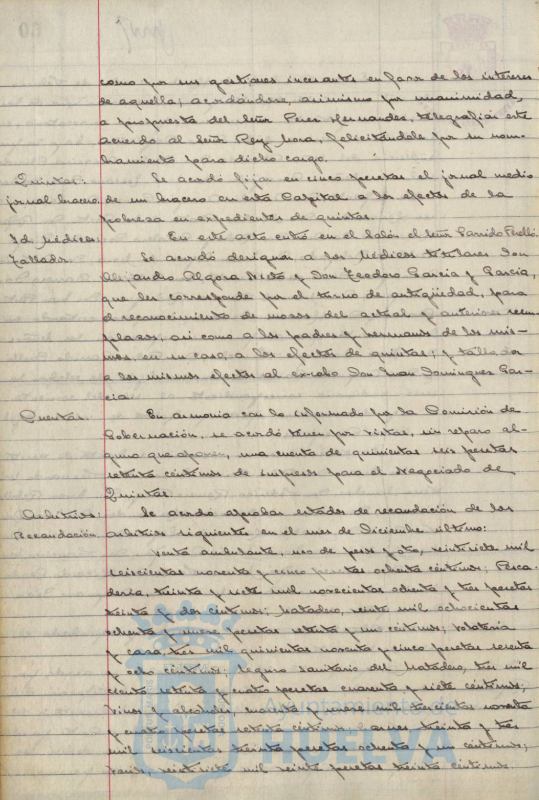 como por sus gestiones incesantes en favor de los intereses
de aquella; acordándose, asimismo por unanimidad,
a propuesta del Señor Perez Hernandez, telegrafiar este
acuerdo al Señor Rey Mora, felicitándole por su nom-
bramiento para dicho cargo.
Quintas:
jornal bracero.
Se acordó fijar en cinco pesetas el jornal medio
de un bracero en esta Capital a los efectos de la
pobreza en expedientes de quintas.
Id. Médicos:
Tallador.
En este acto entró en el Salón el Señor Garrido Perelló.
Se acordó designar a los Médicos titulares Don
Alejandro Algora Nieto y Don Teodoro Garcia y Garcia,
que les corresponde por el turno de antigüedad, para
el reconocimiento de mozos del actual y anteriores reem-
plazos, así como a los padres y hermanos de los mis-
mos, en su caso, a los efectos de quintas; y tallador
a los mismos efectos al ex-cabo Don Juan Dominguez Gar-
cia.
Cuentas.
En armonia con lo informado por la Comisión de
Gobernación, se acordó tener por vistas, sin reparo al-
guno que oponer, una cuenta de quinientas seis pesetas
setenta céntimos de impresos para el Negociado de
Quintas.
Arbitrios:
Recaudación.
Se acordó aprobar estados de recaudación de los
arbitrios siguientes en el mes de Diciembre último:
Venta ambulante, uso de pesos y otro, veintisiete mil
seiscientas noventa y cinco pesetas ochenta céntimos; Pesca-
deria, treinta y siete mil novecientas ochenta y tres pesetas
treinta y dos céntimos; Matadero, veinte mil ochocientas
ochenta y nueve pesetas setenta y un céntimos; volateria
y caza, tres mil quinientas noventa y cinco pesetas sesenta
y ocho céntimos; seguro sanitario del Matadero, tres mil
ciento setenta y cuatro pesetas cuarenta y siete céntimos;
vinos y alcoholes mil trescientas noventa
y cuatro pesetas setenta céntimos; carnes treinta y tres
mil seiscientas treinta pesetas ochenta y un céntimos;
veintisiete mil veinte pesetas treinta céntimos.
Ayuntamiento de
HUELVA